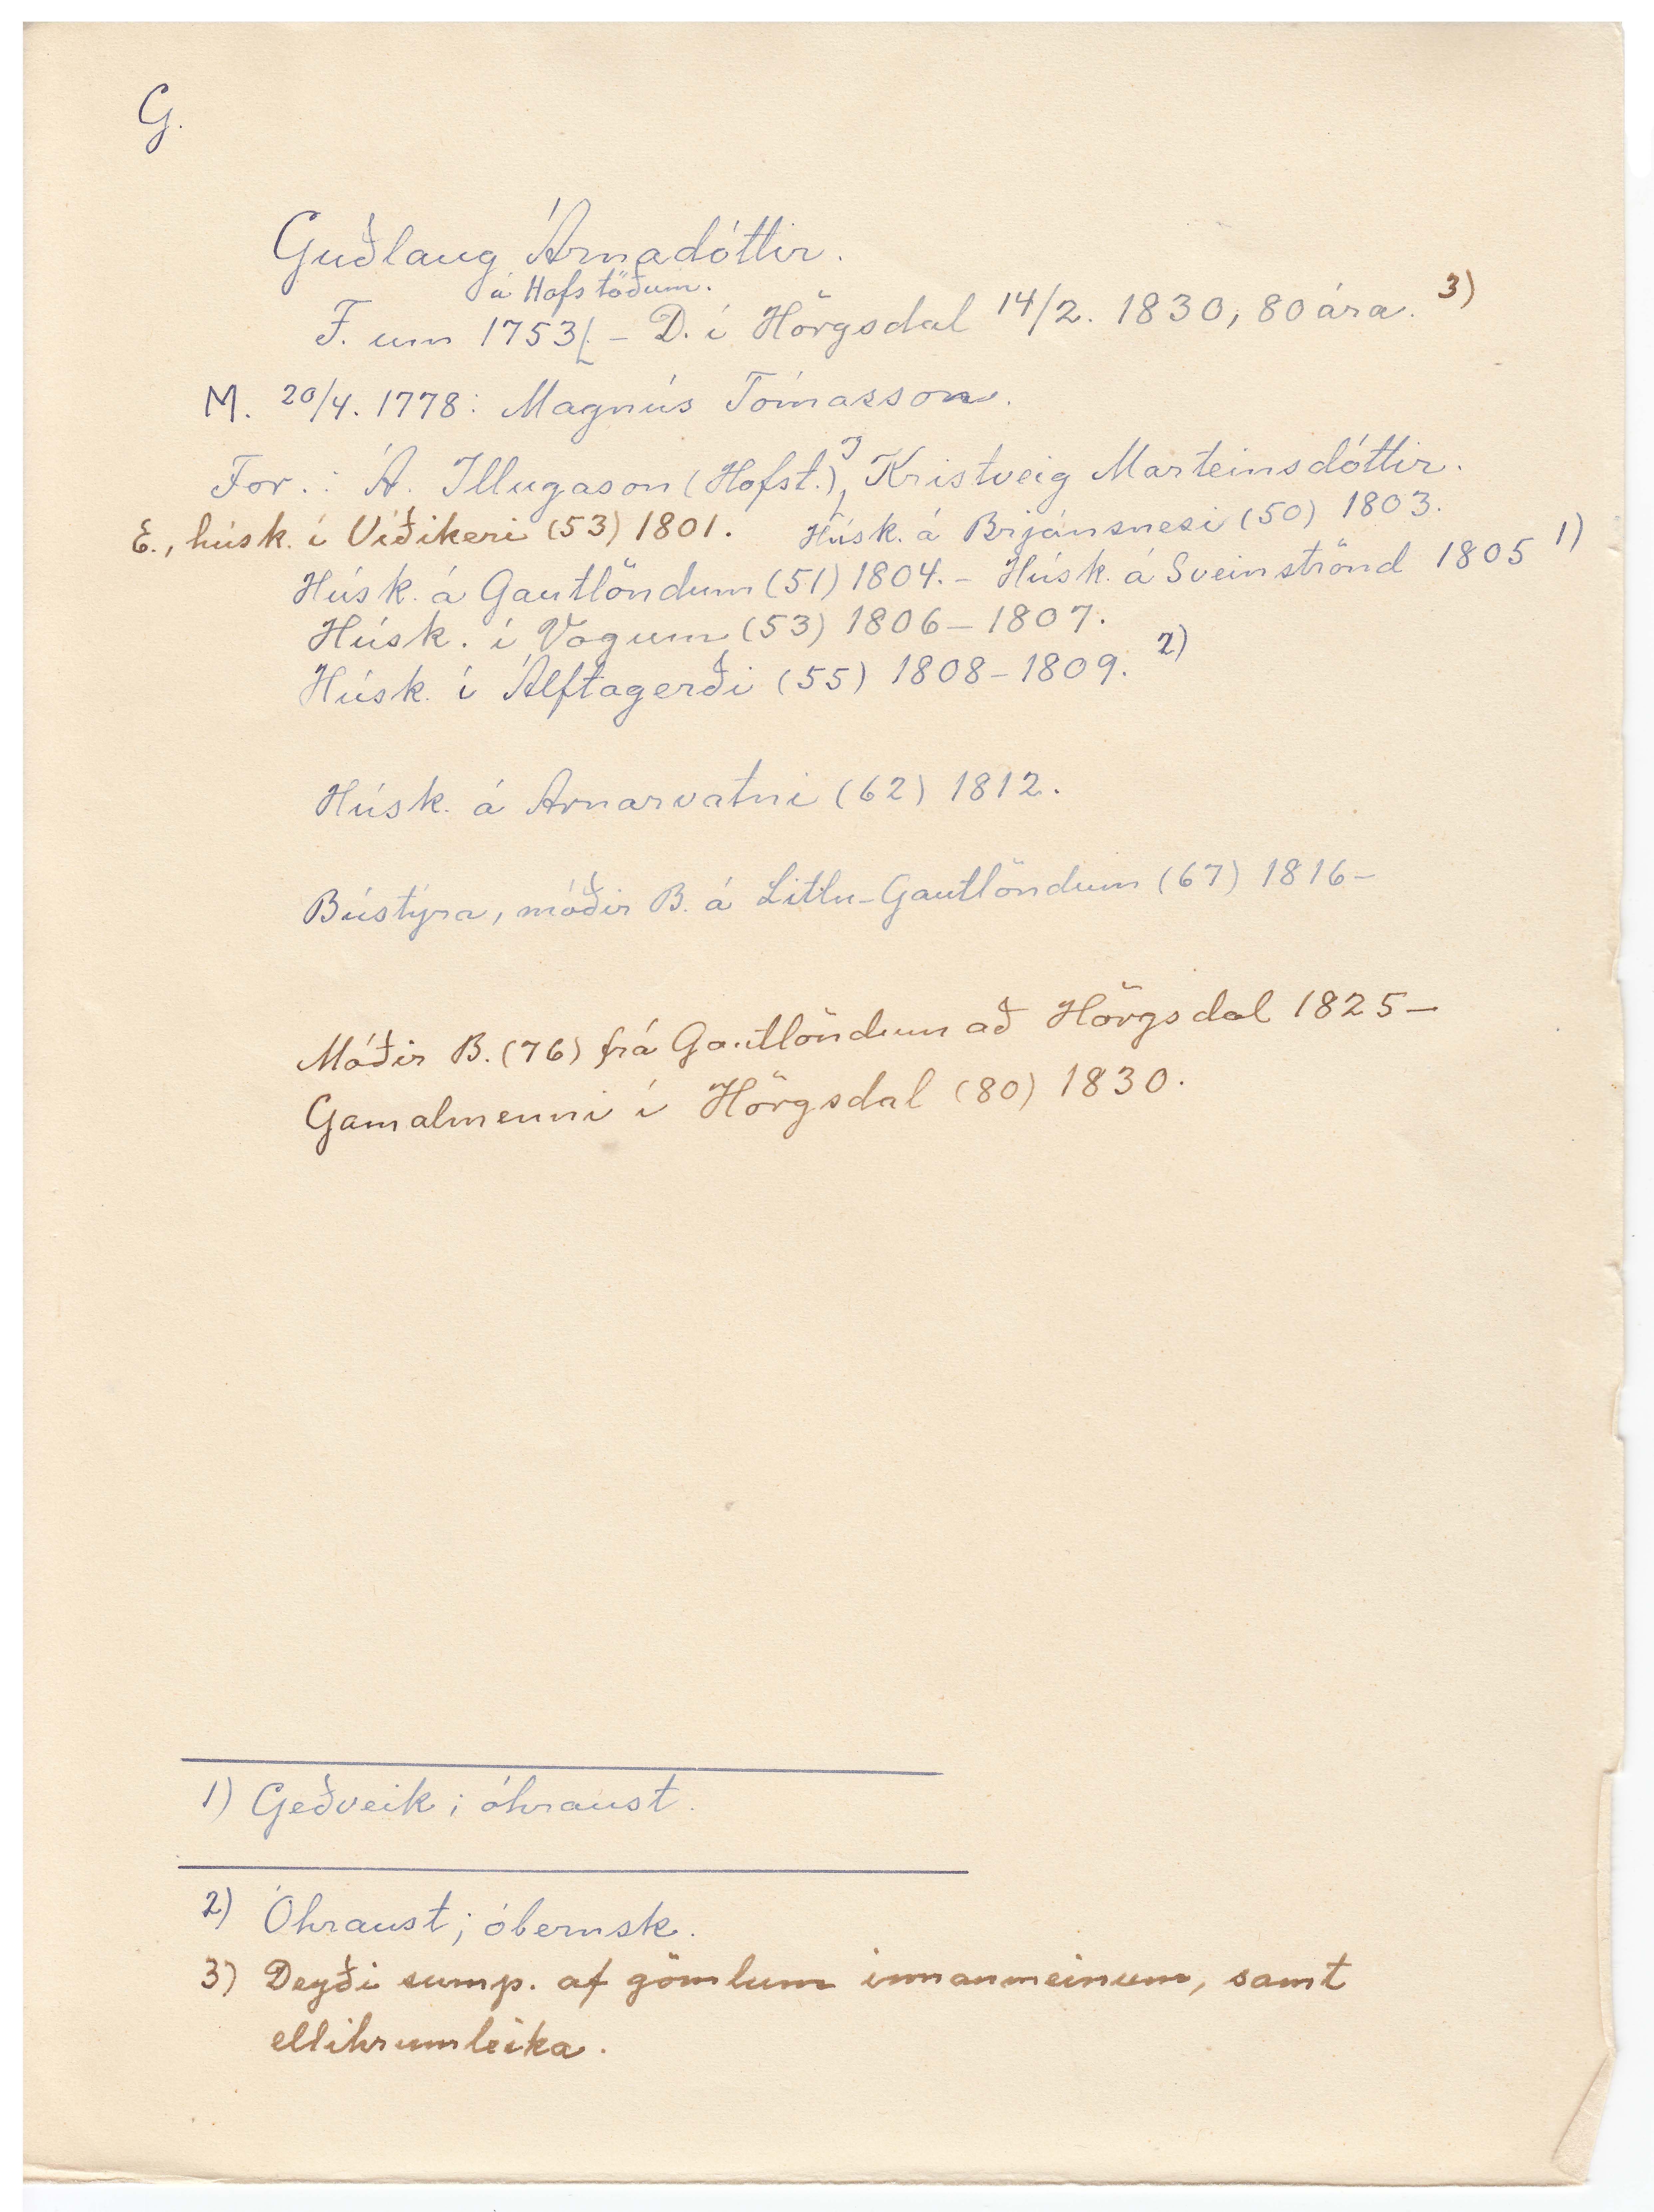 G.
Guðlaug Árnadóttir.
á Hofstöðum.
F. um 1753[. – D. í Hörgsdal 14/2. 1830, 80 ára. 3)
M. 20/4. 1778: Magnús Tómasson.
For.: Á. Illugason (Hofst.), Kristveig Marteinsdóttir.
E., húsk. í Víðikeri (53) 1801. Húsk. á Brjánsnesi (50) 1803.
Húsk. á Gautlöndum (51) 1804. – Húsk. á Sveinströnd 1805 1)
Húsk. í Vogum (53) 1806–1807.
Húsk. í Álftagerði (55) 1808–1809. 2)
Húsk. á Arnarvatni (62) 1812.
Bústýra, móðir B. á Litlu-Gautlöndum (67) 1816–
Móðir B. (76) frá Gautlöndum að Hörgsdal 1825–
Gamalmenni í Hörgsdal (80) 1830.
1) Geðveik; óhraust.
2) Óhraust; óbernsk.
3) Deyði sump. af gömlum innanmeinum, samt
ellihrumleika.